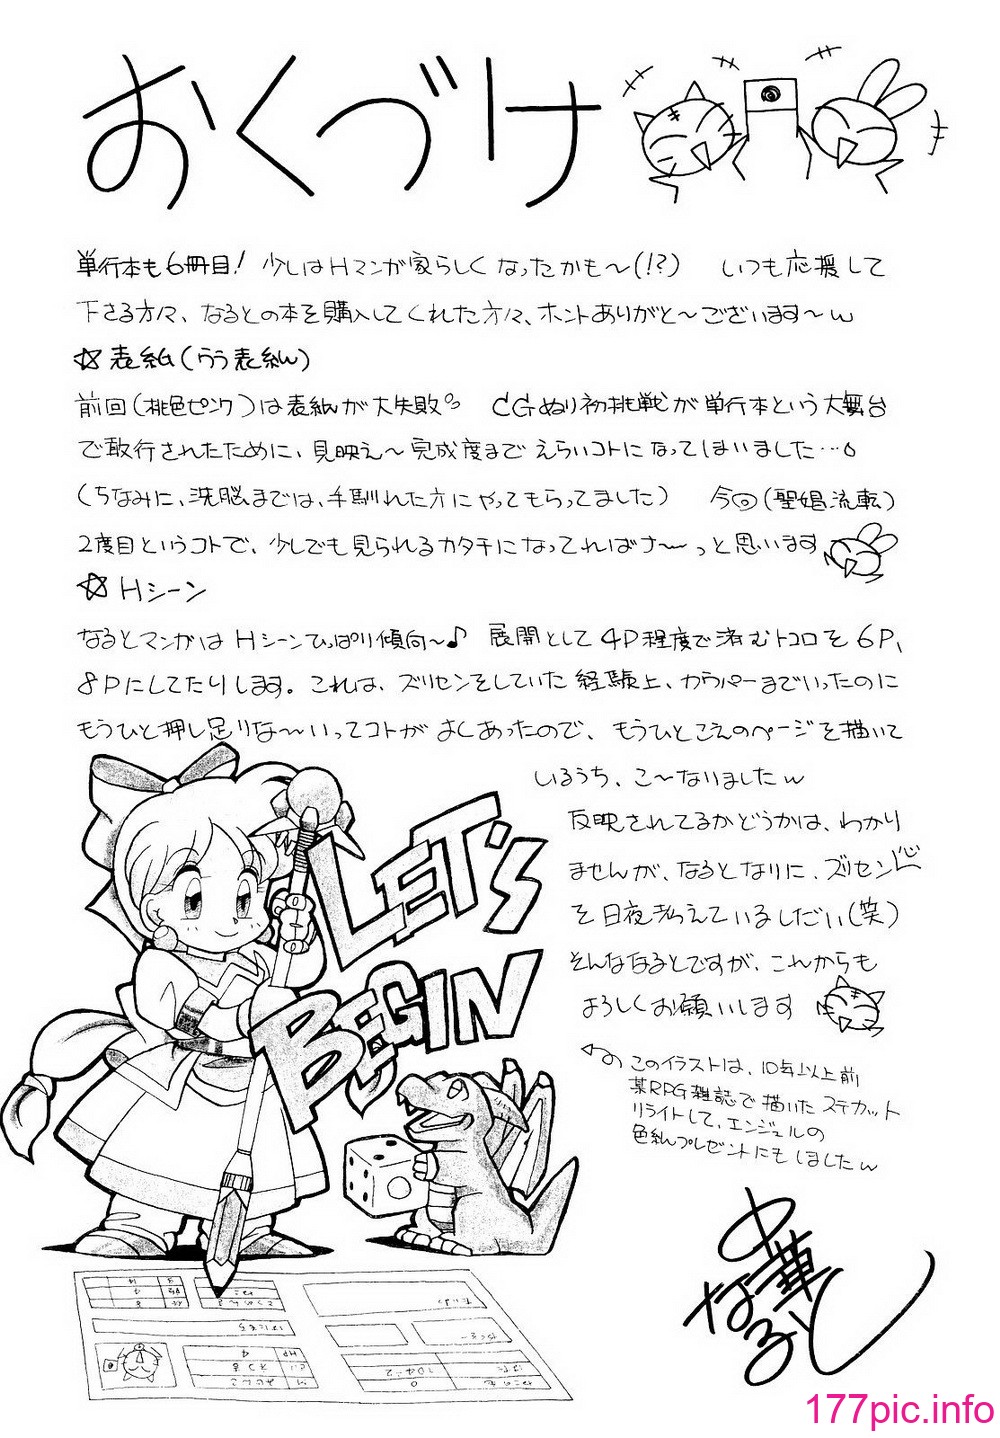 おくづけ
単行本も6冊目! 少しはHマンガ家らしくなったかも〜(!?) いつも応援して
下さる方々、なるとの本を購入してくれた方々、ホントありがと〜ございます〜w
☆表紙(うら表紙)
前回(桃色ピンク)は表紙が大失敗 CGぬり初挑戦が単行本という大舞台
で敢行されたために、見映え〜完成度までえらいコトになってしまいました…。
(ちなみに、洗脳までは、手馴れた方にやってもらってました) 今回(聖娼流転)
2度目というコトで、少しでも見られるカタチになってればナ〜っと思います
☆Hシーン
なるとマンガはHシーンひっぱり傾向〜♪ 展開として4P程度で済むトコロを6P、
8Pにしてたりします。これは、ズリセンをしていた経験上、カウパーまでいったのに
もうひと押し足りな〜いってコトがよくあったので、もうひとこえのページを描いて
いるうち、こ〜なりましたw
反映されてるかどうかは、わかり
ませんが、なるとなりに、ズリセン
を日夜考えているしだい(笑)
そんななるとですが、これからも
よろしくお願いします
LET'S
BEGIN
←の このイラストは、10年以上前
某RPG雑誌で描いたステカット
リライトして、エンジェルの
色紙プレゼントにもしましたw
中華
なると
177pic.info